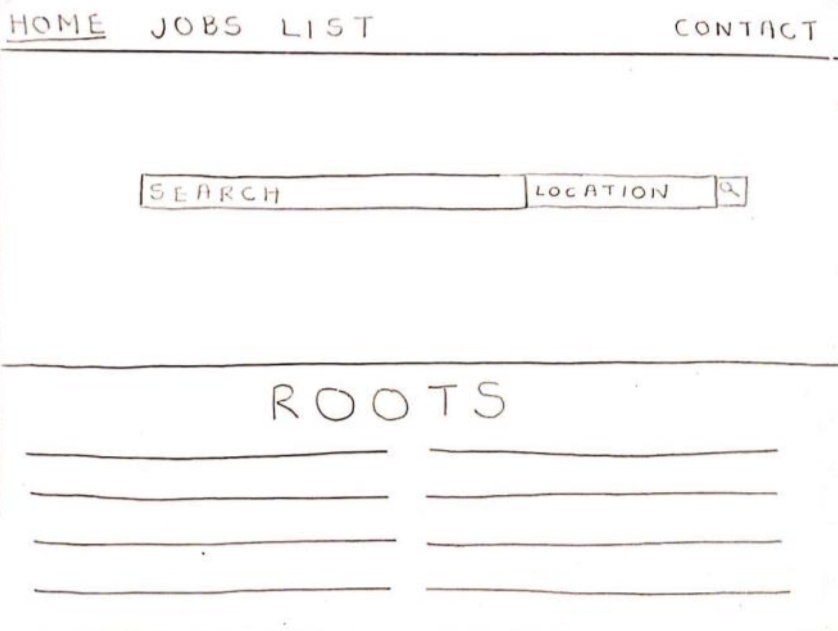 HOME JOBS LIST CONTACT
SEARCH LOCATION
ROOTS